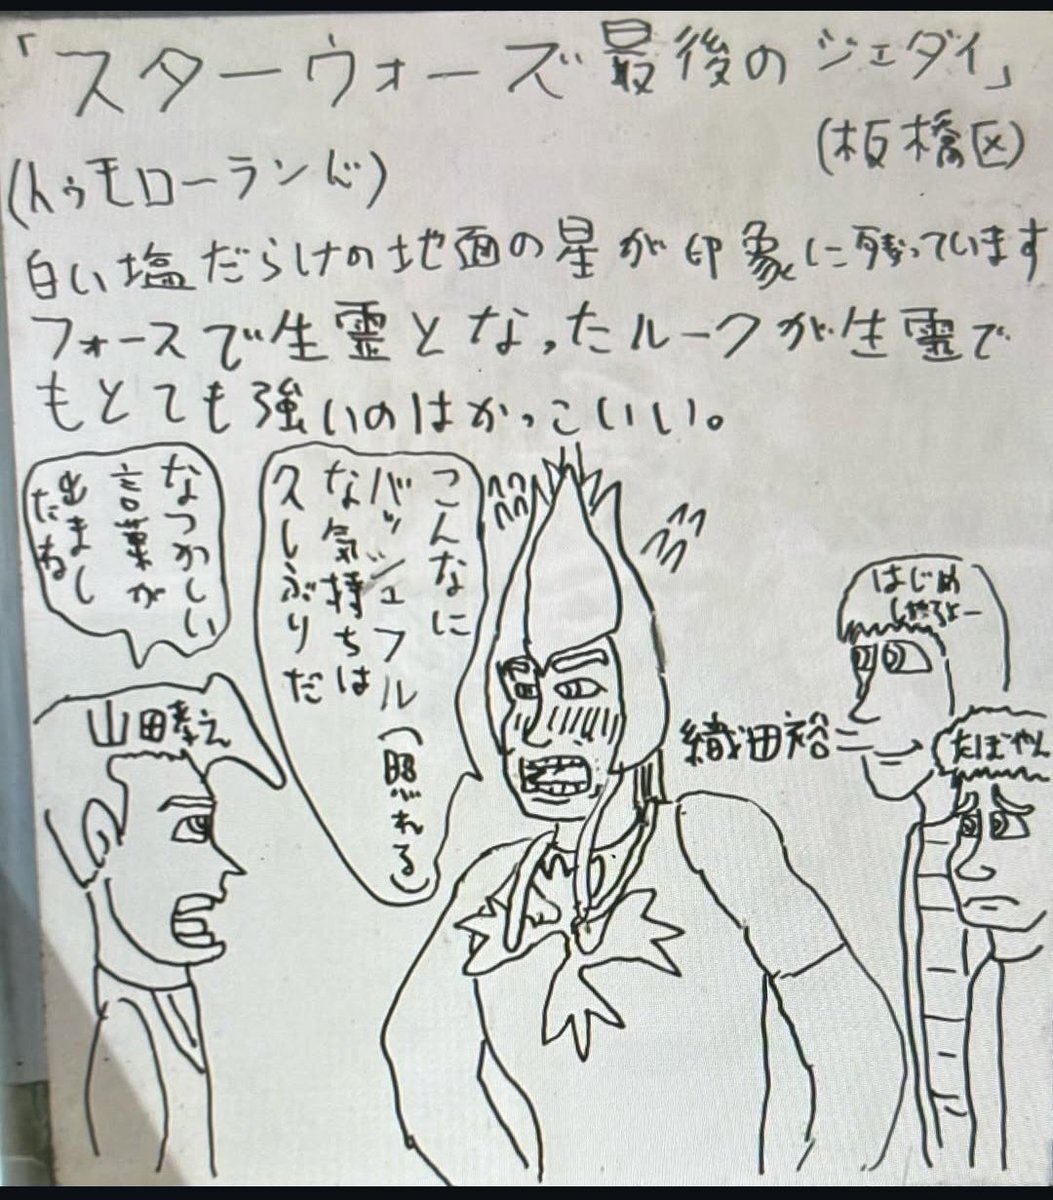 「スターウォーズ最後のジェダイ」
(板橋区)
(トゥモローランド)
白い塩だらけの地面の星が印象に残っています
フォースで生霊となったルークが生霊で
もとても強いのはかっこいい。
なつかしい
言葉が
出まし
たね
こんなに
バッシュフル(照れる)
な気持ちは
久しぶりだ
山田孝之
織田裕二
はじめ
しゃちょー
たぼやん